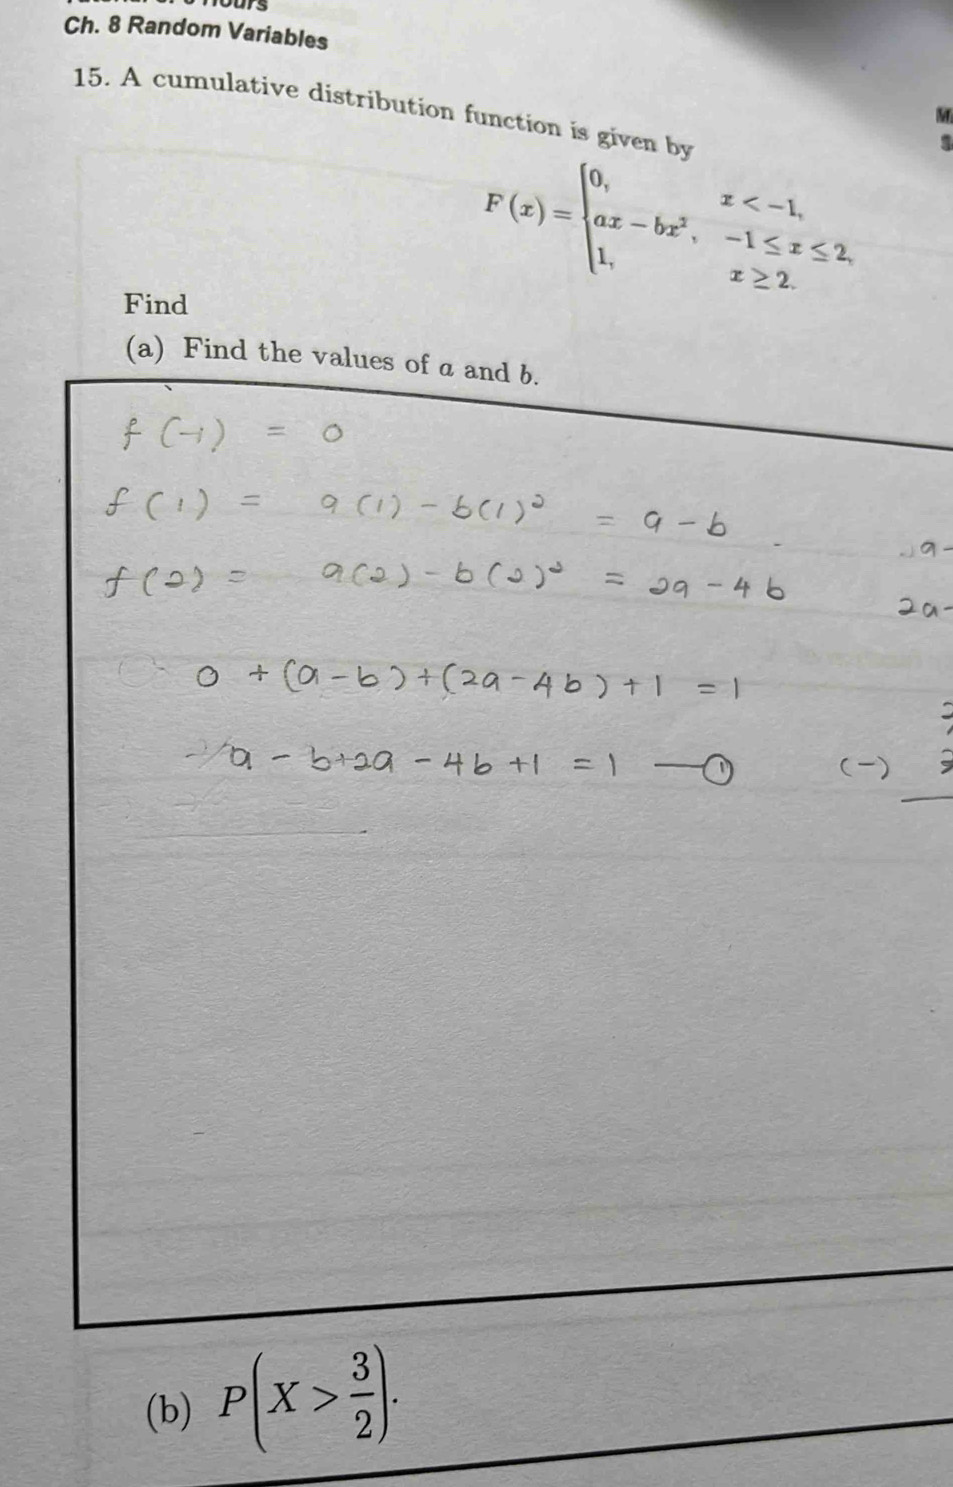 Ch. 8 Random Variables
15. A cumulative distribution function is given by
F(x) = {0, x < -1,
ax - bx², -1 ≤ x ≤ 2,
1, x ≥ 2.
Find
(a) Find the values of a and b.
f(-1) = 0
f(1) = a(1) - b(1)² = a - b
f(2) = a(2) - b(2)² = 2a - 4b
2a-
0 + (a - b) + (2a - 4b) + 1 = 1
a - b + 2a - 4b + 1 = 1 — ①
(-)
(b) P(X > 3/2).